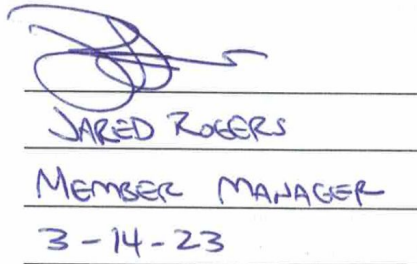 JARED ROGERS
MEMBER MANAGER
3-14-23